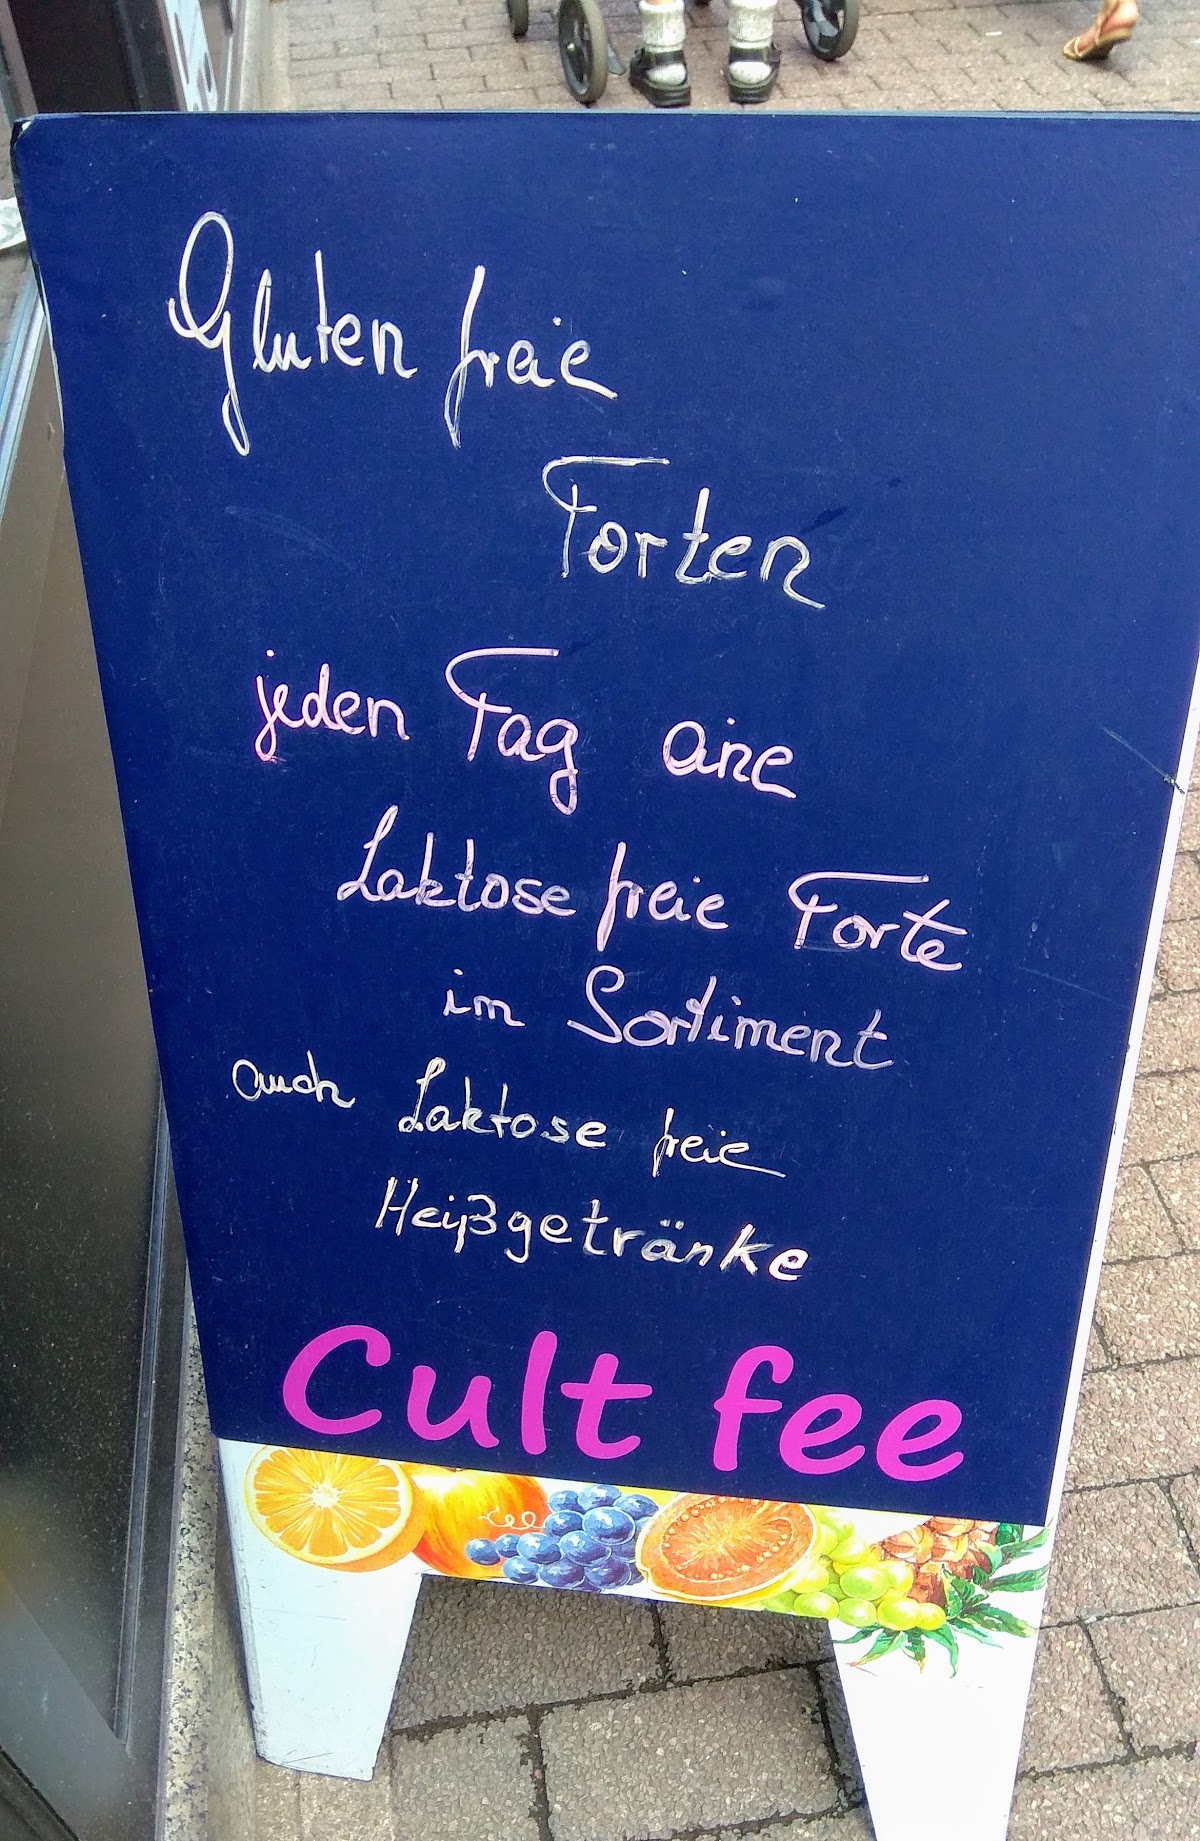 Gluten freie
Torten
jeden Tag eine
Laktose freie Torte
im Sortiment
auch Laktose freie
Heißgetränke
Cult fee